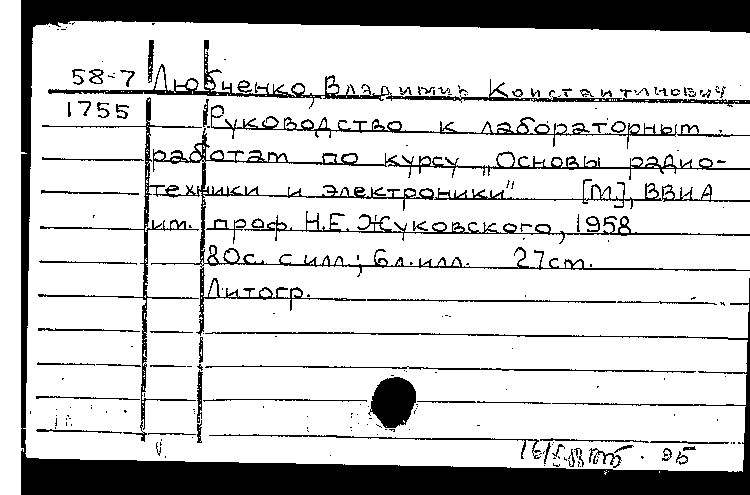 58-7 Любченко, Владимир Константинович
1755 Руководство к лабораторным
работам по курсу „Основы радио-
техники и электроники" [М.], ВВИА
им. проф. Н.Е. Жуковского, 1958.
80с. с илл.; 6л. илл. 27см.
Литогр.